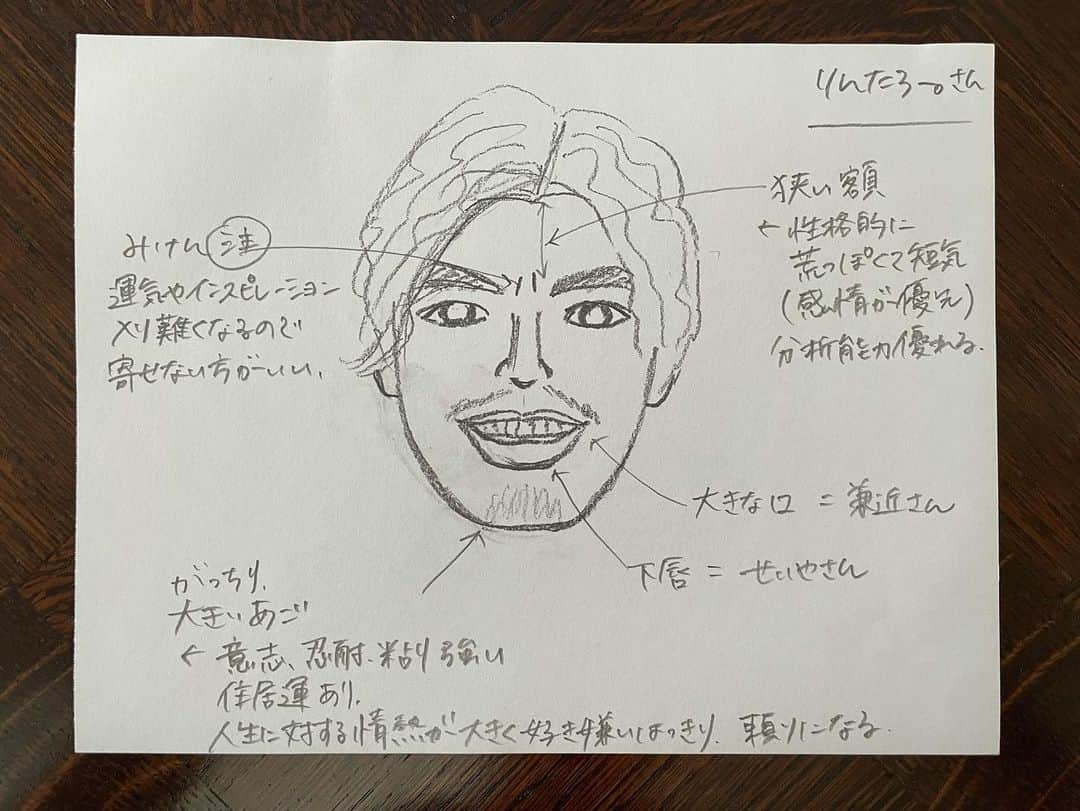 りんたろー。さん
狭い額
← 性格的に
荒っぽくて短気
(感情が優先)
分析能力優れる。
みけん 注
運気やインスピレーション
入り難くなるので
寄せない方がいい。
大きな口 = 兼近さん
下唇 = せいやさん
がっちり、
大きいあご
← 意志、忍耐、粘り強い
住居運あり。
人生に対する情熱が大きく好き嫌いはっきり、頼りになる。